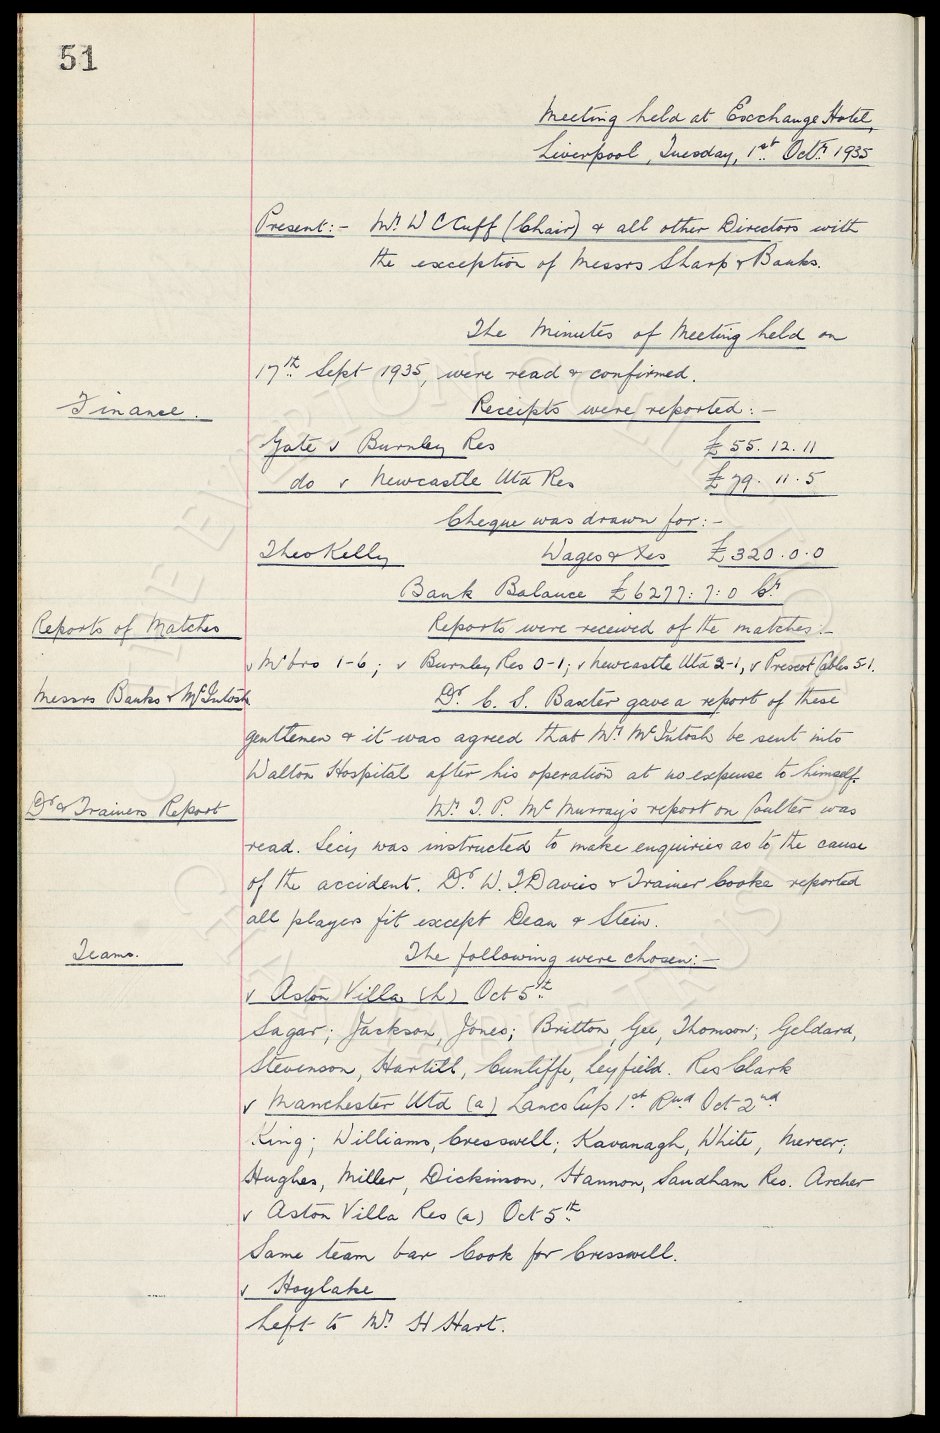 51
Meeting held at Exchange Hotel,
Liverpool, Tuesday, 1st. Octr. 1935
Present:- Mr. W C Cuff (Chair) & all other Directors with
the exception of Messrs Sharp & Banks.
The Minutes of Meeting held on
17th. Sept 1935, were read & confirmed.
Finance. Receipts were reported:-
Gate v Burnley Res £55.12.11
do v Newcastle Utd Res £79.11.5
Cheque was drawn for:-
Theo Kelly Wages & Xes £320.0.0
Bank Balance £6277:7:0 Cr.
Reports of Matches Reports were received of the matches:-
v M'bro 1-6; v Burnley Res 0-1; v Newcastle Utd 2-1, v Prescot Cables 5-1.
Messrs Banks & McIntosh. Dr. C. S. Baxter gave a report of these
gentlemen & it was agreed that Mr. McIntosh be sent into
Walton Hospital after his operation at no expense to himself.
Dr & Trainers Report Mr. T. P. McMurray's report on Coulter was
read. Secy was instructed to make enquiries as to the cause
of the accident. Dr. W. T. Davies & Trainer Cooke reported
all players fit except Dean & Stein.
Teams. The following were chosen:-
v Aston Villa (h) Oct 5th.
Sagar; Jackson, Jones; Britton, Gee, Thomson; Geldard,
Stevenson, Hartill, Cunliffe, Leyfield. Res Clark
v Manchester Utd (a) Lancs Cup 1st. Rnd Oct 2nd
King; Williams, Cresswell; Kavanagh, White, Mercer;
Hughes, Miller, Dickinson, Hannon, Sandham Res. Archer
v Aston Villa Res (a) Oct 5th.
Same team bar Cook for Cresswell.
v Hoylake
Left to Mr. H Hart.